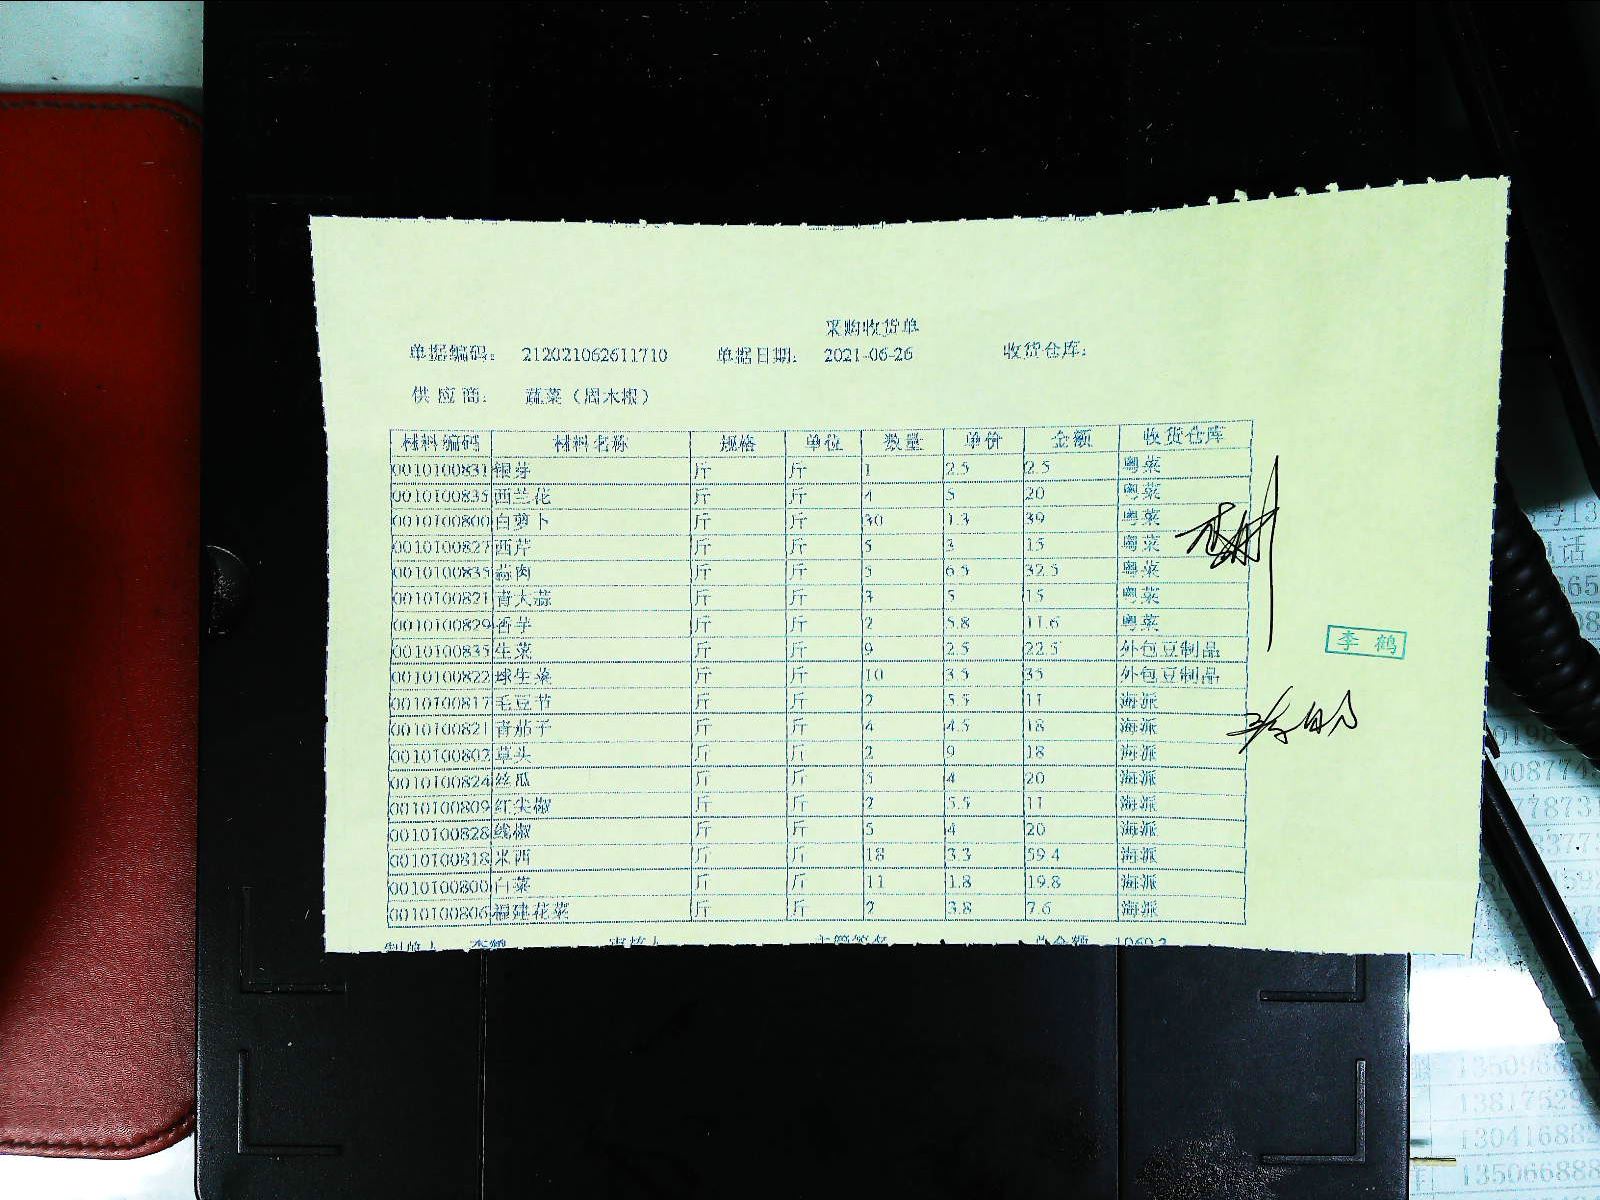 采购收货单
单据编码: 212021062611710 单据日期: 2021-06-26 收货仓库:
供应商: 蔬菜(周木根)
材料编码 材料名称 规格 单位 数量 单价 金额 收货仓库
0010100831 银芽 斤 斤 1 2.5 2.5 粤菜
0010100835 西兰花 斤 斤 4 5 20 粤菜
0010100800 白萝卜 斤 斤 30 1.3 39 粤菜
0010100827 西芹 斤 斤 5 3 15 粤菜
0010100835 蒜肉 斤 斤 5 6.5 32.5 粤菜
0010100821 青大蒜 斤 斤 3 5 15 粤菜
0010100829 香芋 斤 斤 2 5.8 11.6 粤菜
0010100835 生菜 斤 斤 9 2.5 22.5 外包豆制品
0010100822 球生菜 斤 斤 10 3.5 35 外包豆制品
0010100817 毛豆节 斤 斤 2 5.5 11 海派
0010100821 青茄子 斤 斤 4 4.5 18 海派
0010100802 草头 斤 斤 2 9 18 海派
0010100824 丝瓜 斤 斤 5 4 20 海派
0010100809 红尖椒 斤 斤 2 5.5 11 海派
0010100828 线椒 斤 斤 5 4 20 海派
0010100818 米西 斤 斤 18 3.3 59.4 海派
0010100800 白菜 斤 斤 11 1.8 19.8 海派
0010100806 福建花菜 斤 斤 2 3.8 7.6 海派
制单人 李鹤 审核人 主管签名 总金额 1060.3
李鹤